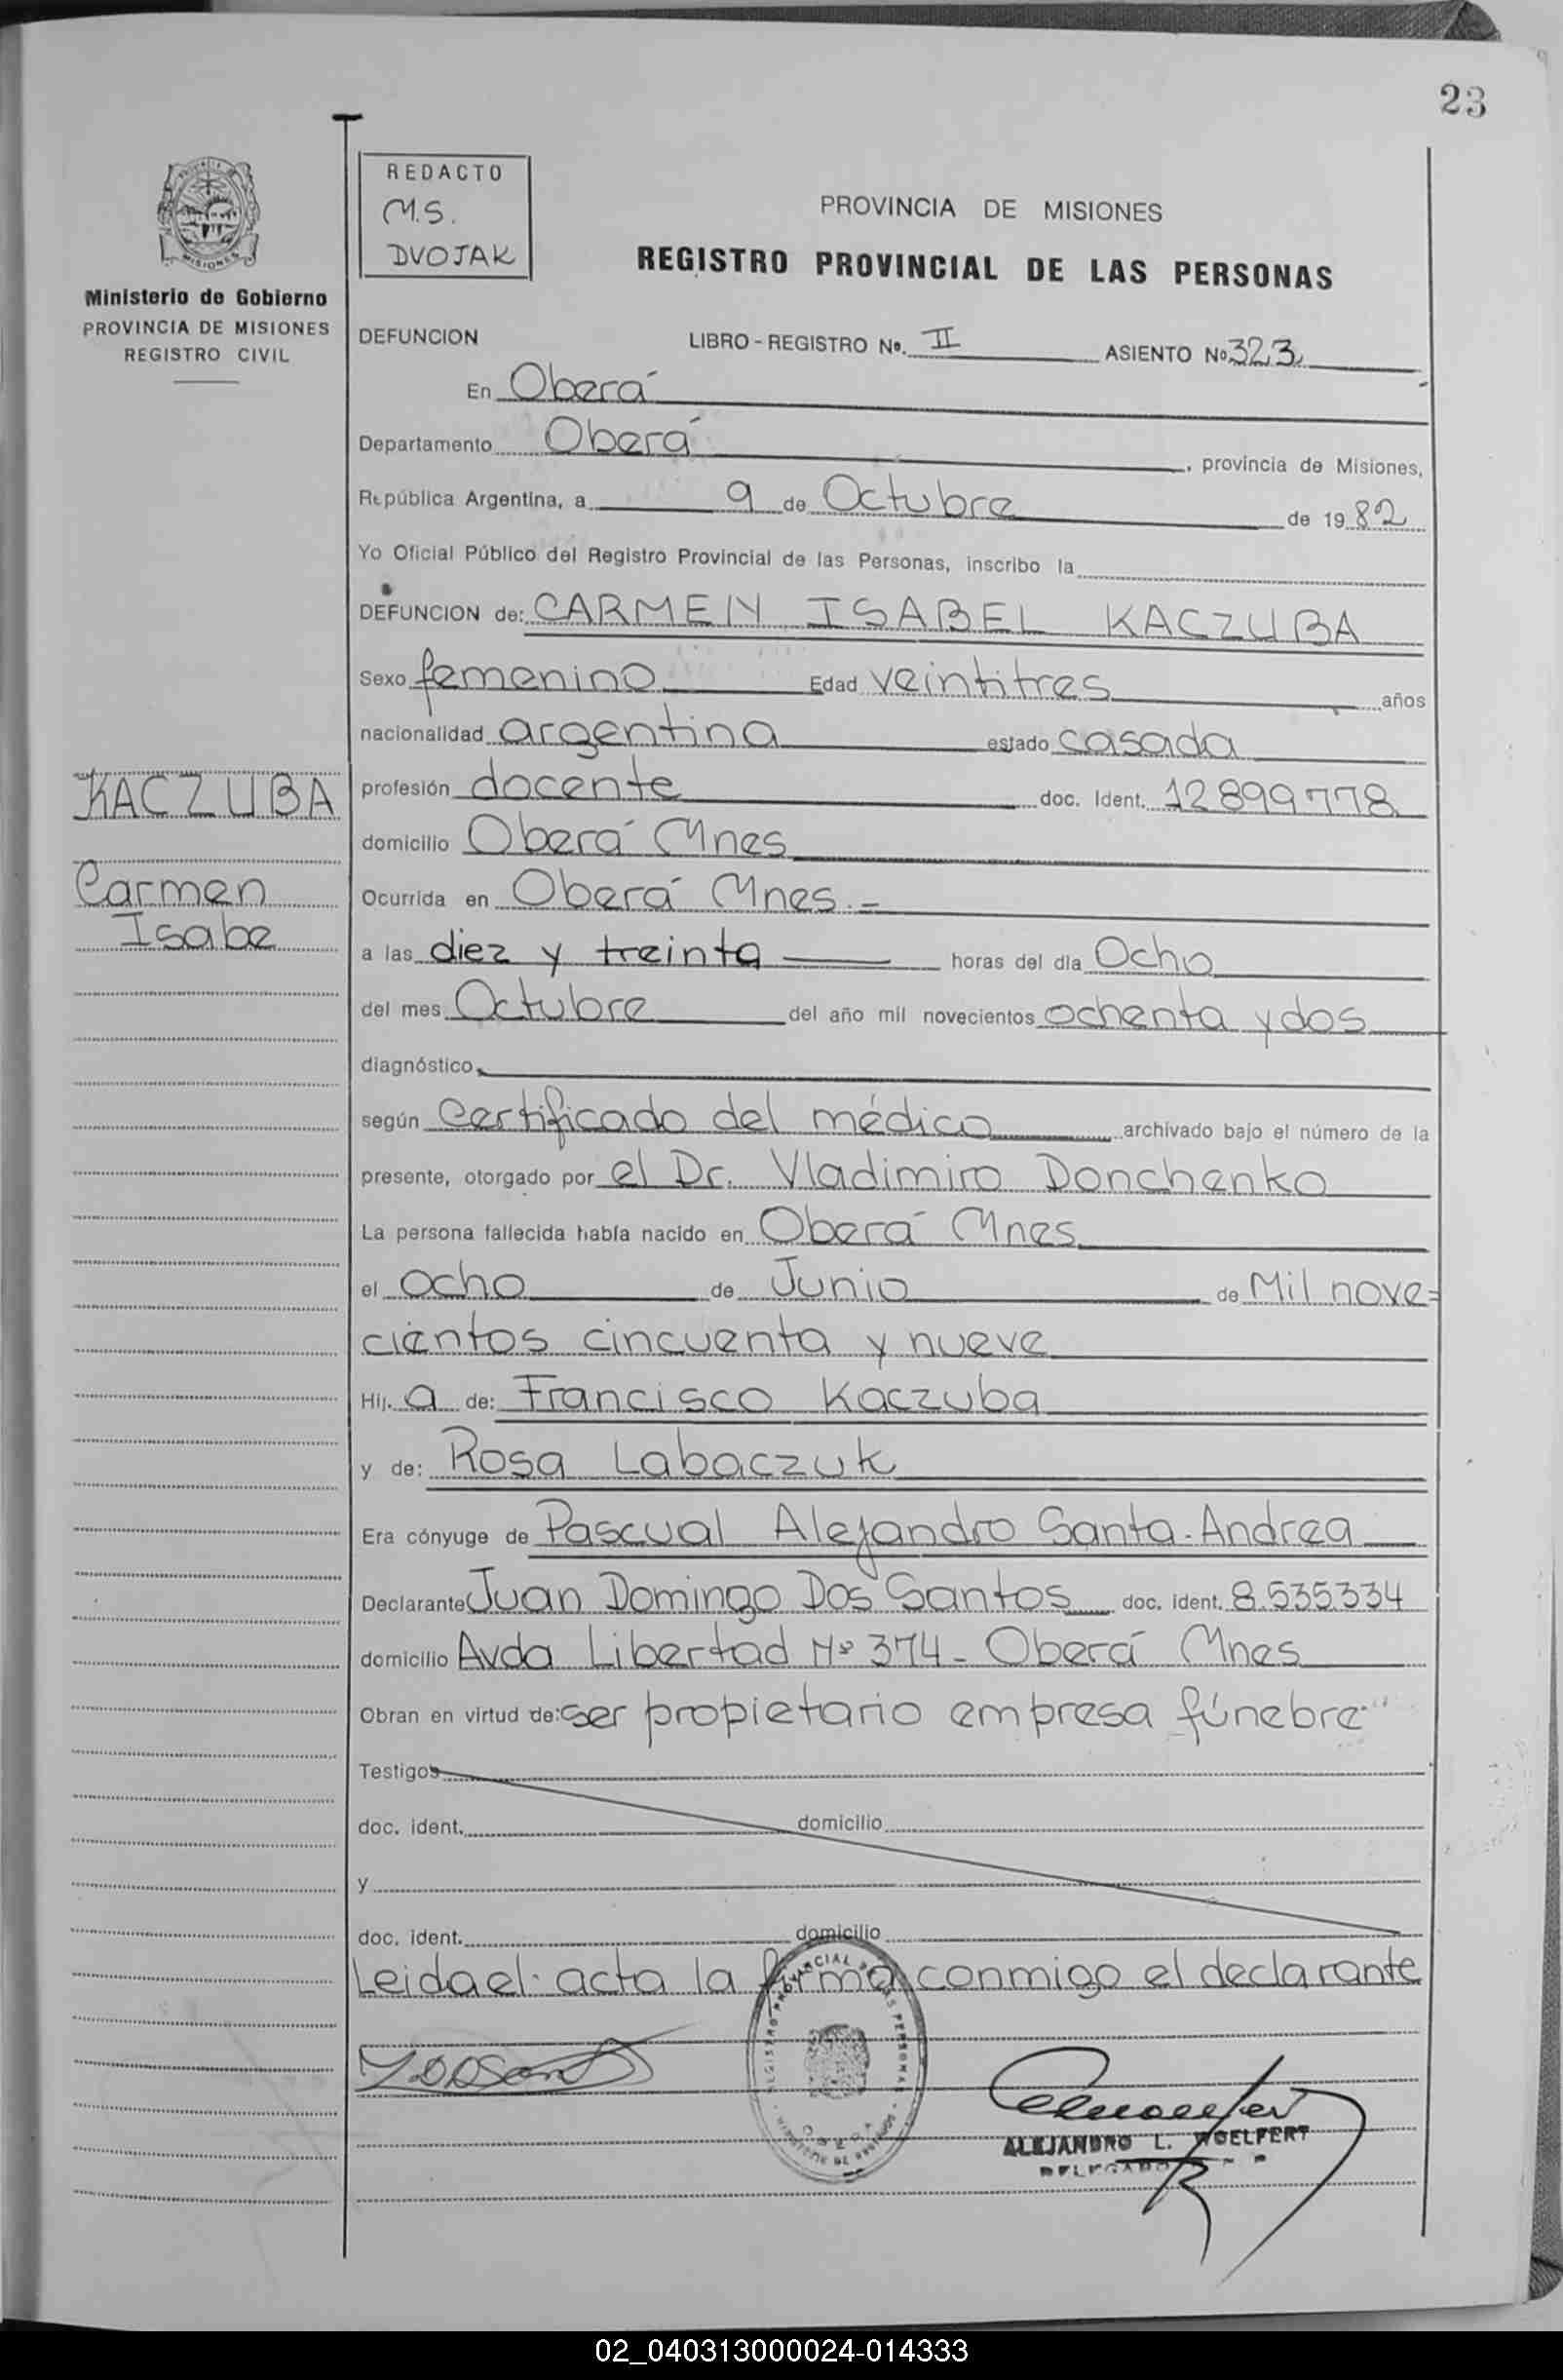 23
REDACTO
M.S.
DVOJAK
PROVINCIA DE MISIONES
REGISTRO PROVINCIAL DE LAS PERSONAS
MISIONES
Ministerio de Gobierno
PROVINCIA DE MISIONES
REGISTRO CIVIL
DEFUNCION LIBRO - REGISTRO No. II ASIENTO No 323
En Oberá
Departamento Oberá, provincia de Misiones,
República Argentina, a 9 de Octubre de 1982
Yo Oficial Público del Registro Provincial de las Personas, inscribo la
DEFUNCION de: CARMEN ISABEL KACZUBA
Sexo femenino Edad veintitres años
nacionalidad argentina estado casada
KACZUBA
profesión docente doc. Ident. 12899778
domicilio Oberá Mnes
Carmen
Isabe
Ocurrida en Oberá Mnes.-
a las diez y treinta horas del día Ocho
del mes Octubre del año mil novecientos ochenta y dos
diagnóstico
según certificado del médico archivado bajo el número de la
presente, otorgado por el Dr. Vladimiro Donchenko
La persona fallecida había nacido en Oberá Mnes
el ocho de Junio de Mil nove=
cientos cincuenta y nueve
Hij. a de: Francisco Kaczuba
y de: Rosa Labaczuk
Era cónyuge de Pascual Alejandro Santa-Andrea
Declarante Juan Domingo Dos Santos doc. ident. 8.535.334
domicilio Avda Libertad Nº 374- Oberá Mnes
Obran en virtud de: ser propietario empresa fúnebre"
Testigos
doc. ident. domicilio
y
doc. ident. domicilio
Leida el acta la firma conmigo el declarante
REGISTRO PROVINCIAL DE LAS PERSONAS
OBERA
ALEJANDRO L. WOELFERT
DELEGADO
02_040313000024-014333